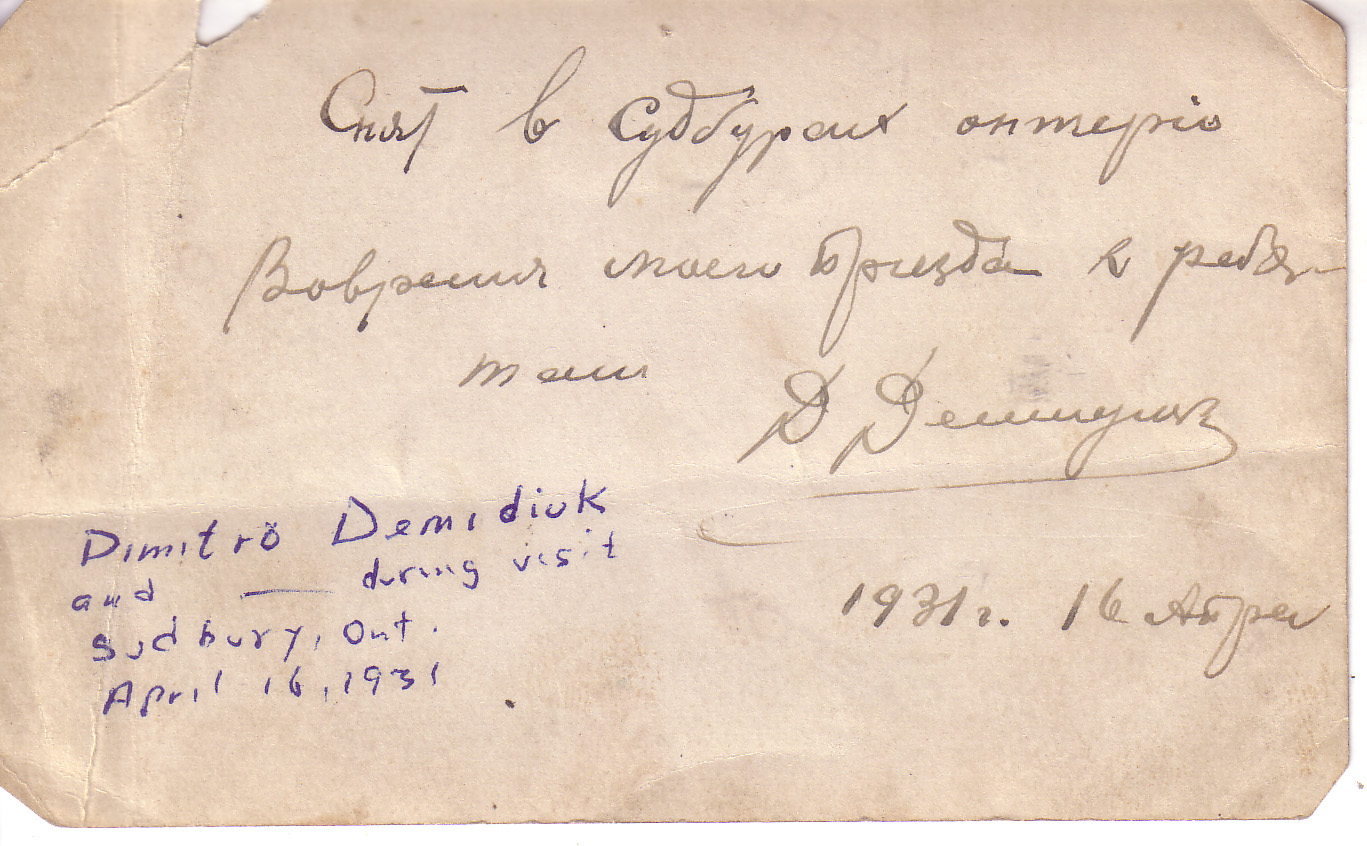 Снят в Судбурах онтеріо
Вовремя моего Приезда к ребя-
там
Д Демидюк
1931 г. 16 Апрел
Dimitrŏ Demidiuk
and ___ during visit
Sudbury, Ont.
April 16, 1931